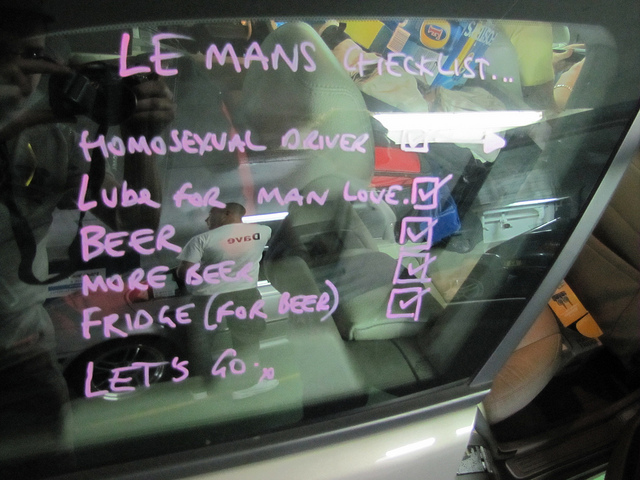 LE MANS CHECKLIST...
HOMOSEXUAL DRIVER
LUBE FOR MAN LOVE.
BEER
MORE BEER
FRIDGE (FOR BEER)
LET'S GO..
Dave